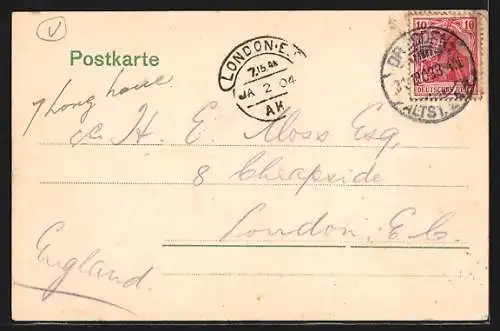 Postkarte
LONDON.E.
7.15 AM
JA 2 04
AK
10 10
DRESDEN
ALTST.
DEUTSCHES REICH
7 Long lane
c/o H. E. Moss Esq,
8 Cheapside
London, E.C.
England.